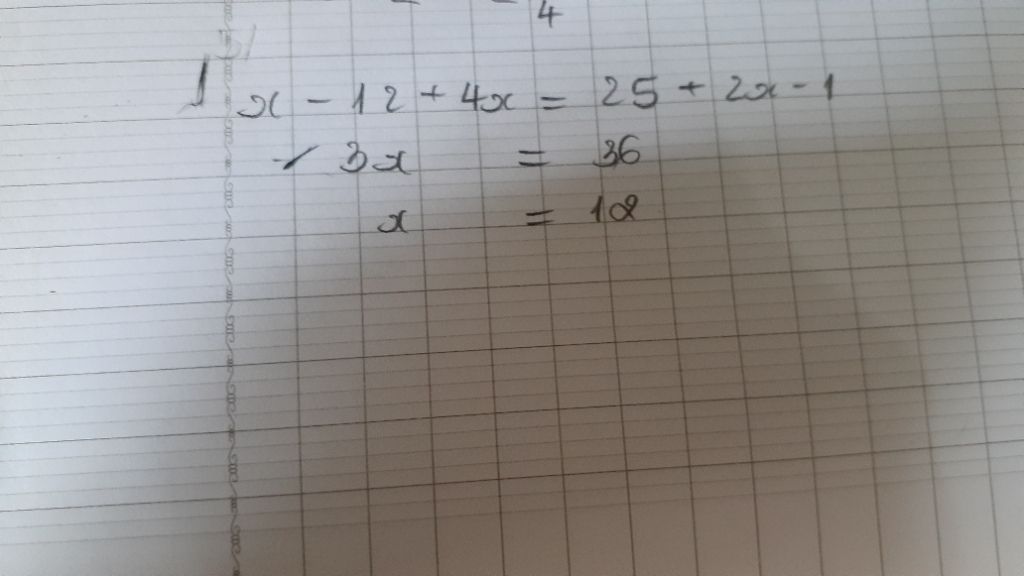 4
x - 12 + 4x = 25 + 2x - 1
3x = 36
x = 12